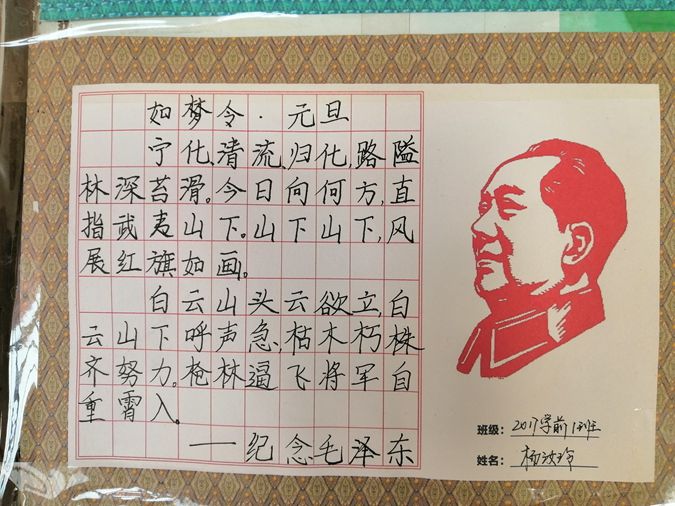 如梦令·元旦
宁化、清流、归化,路隘
林深苔滑。今日向何方,直
指武夷山下。山下山下,风
展红旗如画。
白云山头云欲立,白
云山下呼声急,枯木朽株
齐努力。枪林逼,飞将军自
重霄入。
——纪念毛泽东
班级:2017学前1班
姓名:杨汝玲